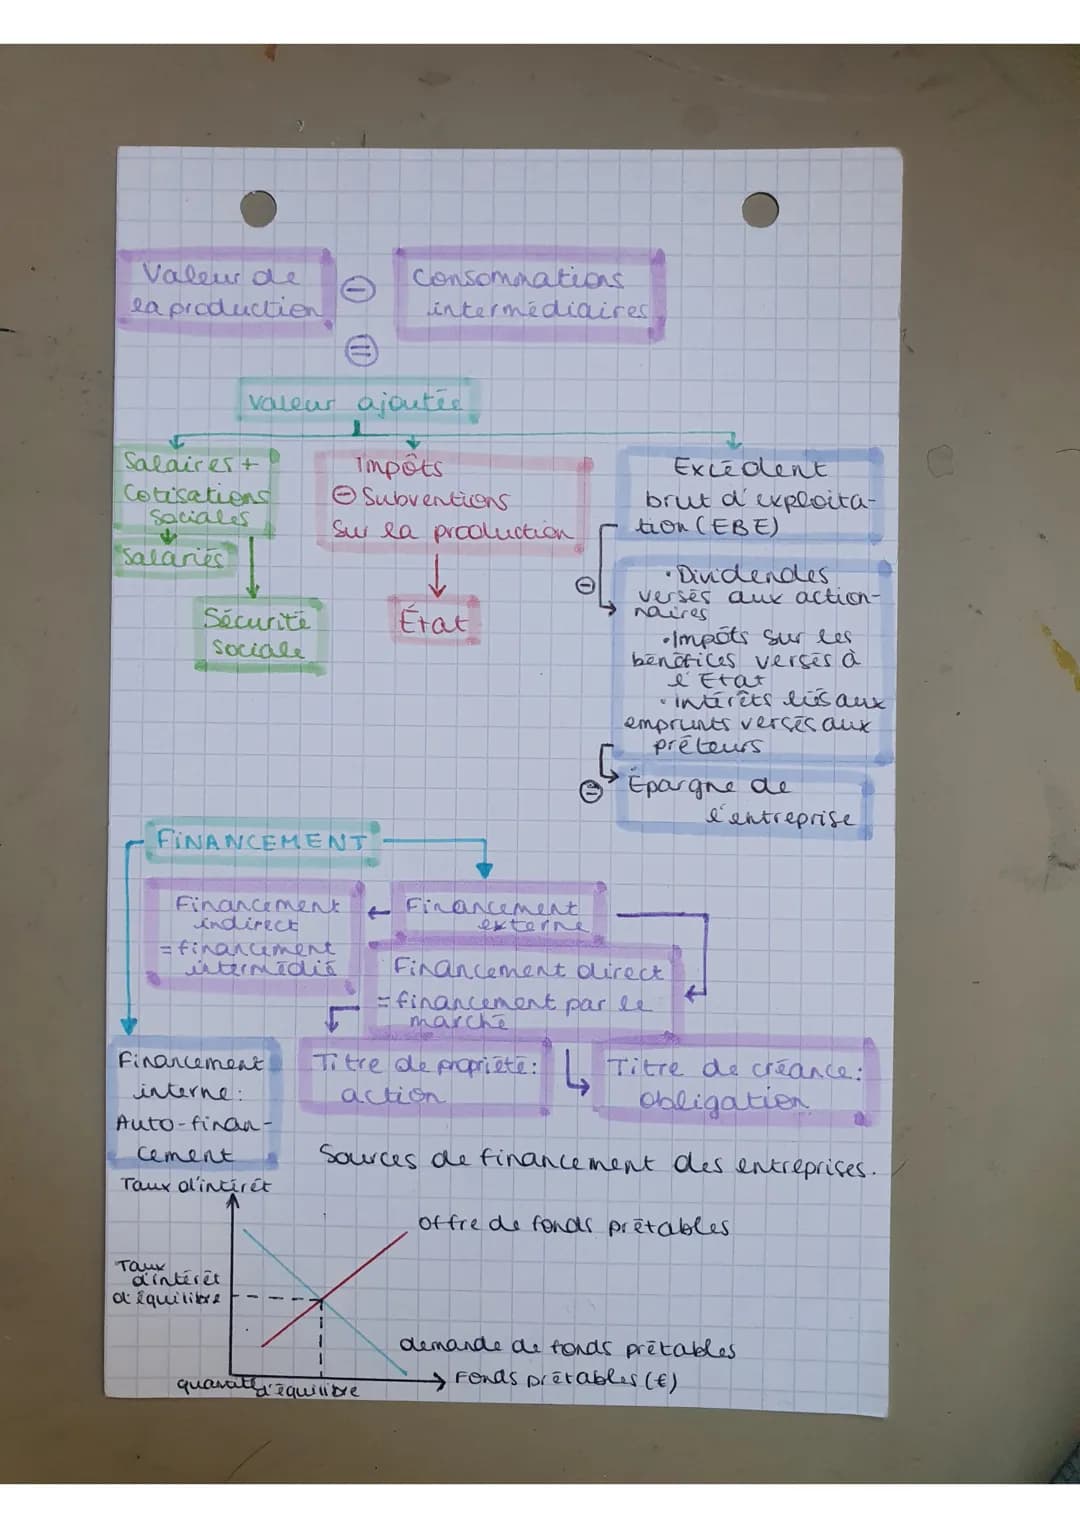 Valeur de
la production
⊖
Consommations
intermédiaires
⊜
Valeur ajoutée
Salaires +
Cotisations
Sociales
Salariés
Sécurité
Sociale
Impôts
⊖ Subventions
Sur la production
État
Excédent
brut d'exploita-
tion (EBE)
⊖
• Dividendes
versés aux action-
naires
• Impôts sur les
bénéfices versés à
l'Etat
• intérêts liés aux
emprunts versés aux
prêteurs
⊜
Épargne de
l'entreprise
FINANCEMENT
Financement
indirect
= financement
intermédié
Financement
externe
Financement direct
= financement par le
marché
Financement
interne:
Auto-finan-
cement
Titre de propriété:
action
Titre de créance:
obligation
Sources de financement des entreprises.
Taux d'intérêt
offre de fonds prêtables
Taux
d'intérêt
d'équilibre
demande de fonds prêtables
Fonds prêtables (€)
d'équilibre